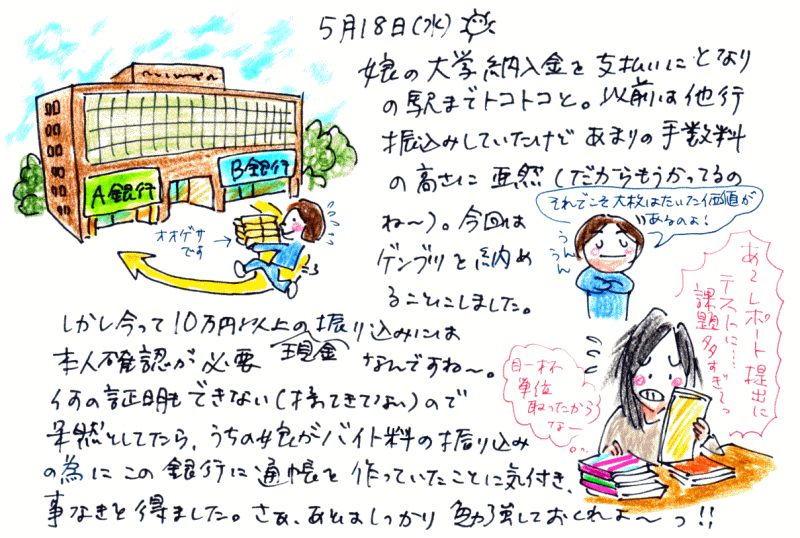 5月18日(水)
娘の大学納入金を支払いにとなり
の駅までトコトコと。以前は他行
振込みしていたけど あまりの手数料
の高さに 唖然(だからもうかってるの
ね〜)。今回は
ゲンブツを納め
ることにしました。
しかし今って10万円以上の振り込みには
本人確認が必要 なんですね〜。
現金
何の証明もできない(持ってきてない)ので
呆然としてたら、うちの娘がバイト料の振り込み
の為にこの銀行に通帳を作っていたことに気付き、
事なきを得ました。さぁ、あとはしっかり 勉強しておくれよ〜っ!!
A銀行
B銀行
オオゲサ
です
それでこそ大枚はたいた価値が
あるのよ!
うん
うん
あ〜レポート提出に
テストに…
課題多すぎ〜っ
目一杯
単位
取ったから
なー